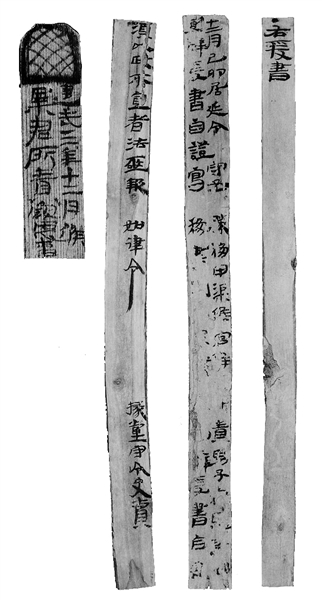 右爰書
十二月己卯居延令 守丞勝移甲渠候官候 責男子
爰書自證寫移 爰書自證
須以政不直者法亟報 如律令 掾黨守令史賞
建武三年十二月候
粟君所責寇恩事